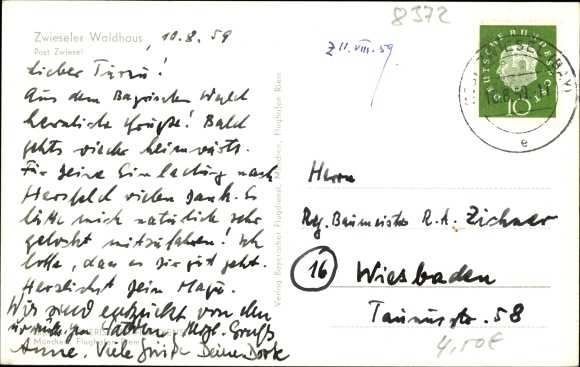 8372
Zwieseler Waldhaus
Post Zwiesel
, 10.8.59
Lieber
Aus dem Bayrischen Wald
herzliche Grüsse! Bald
gehts wieder heimwärts.
Für Deine Einladung nach
Hersfeld vielen Dank. Es
hätte mich natürlich sehr
gelockt mitzufahren! Ich
hoffe, dass es Dir gut geht.
Herzlichst Dein
Wir sind entzückt von den
Grüße
Anne. Viele Grüße Deine
München, Flughafen Riem
Verlag Bayerischer Flugdienst, München, Flughafen Riem
Z 11. VIII. 59.
DEUTSCHE BUNDESPOST
10
e
Herrn
Reg. Baumeister R. A. Zichner
16 Wiesbaden
Taunusstr. 58
4,50€